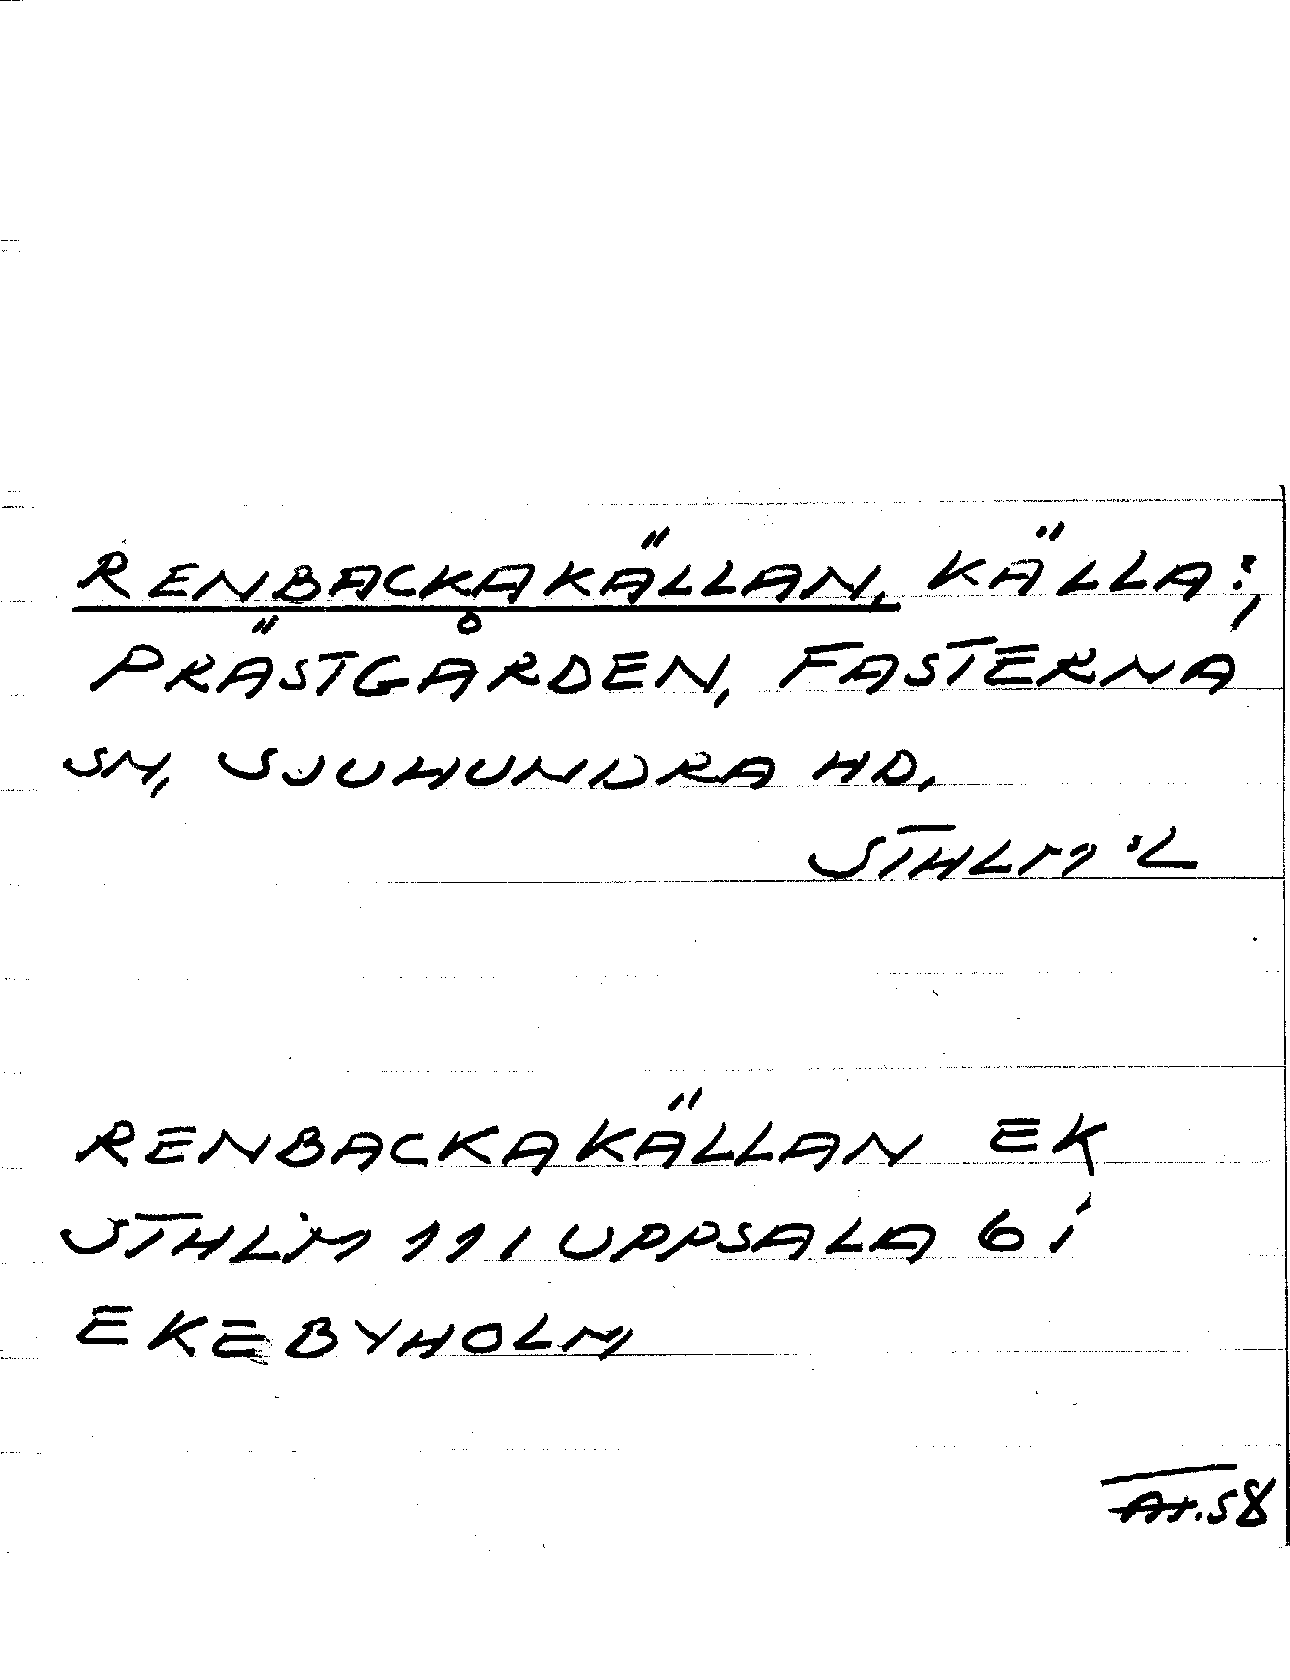 RENBACKAKÄLLAN, KÄLLA;
PRÄSTGÅRDEN, FASTERNA
SN, SJUHUNDRA HD,
STHLM L
RENBACKAKÄLLAN EK
STHLM 111 UPPSALA 6 i
EKEBYHOLM
58